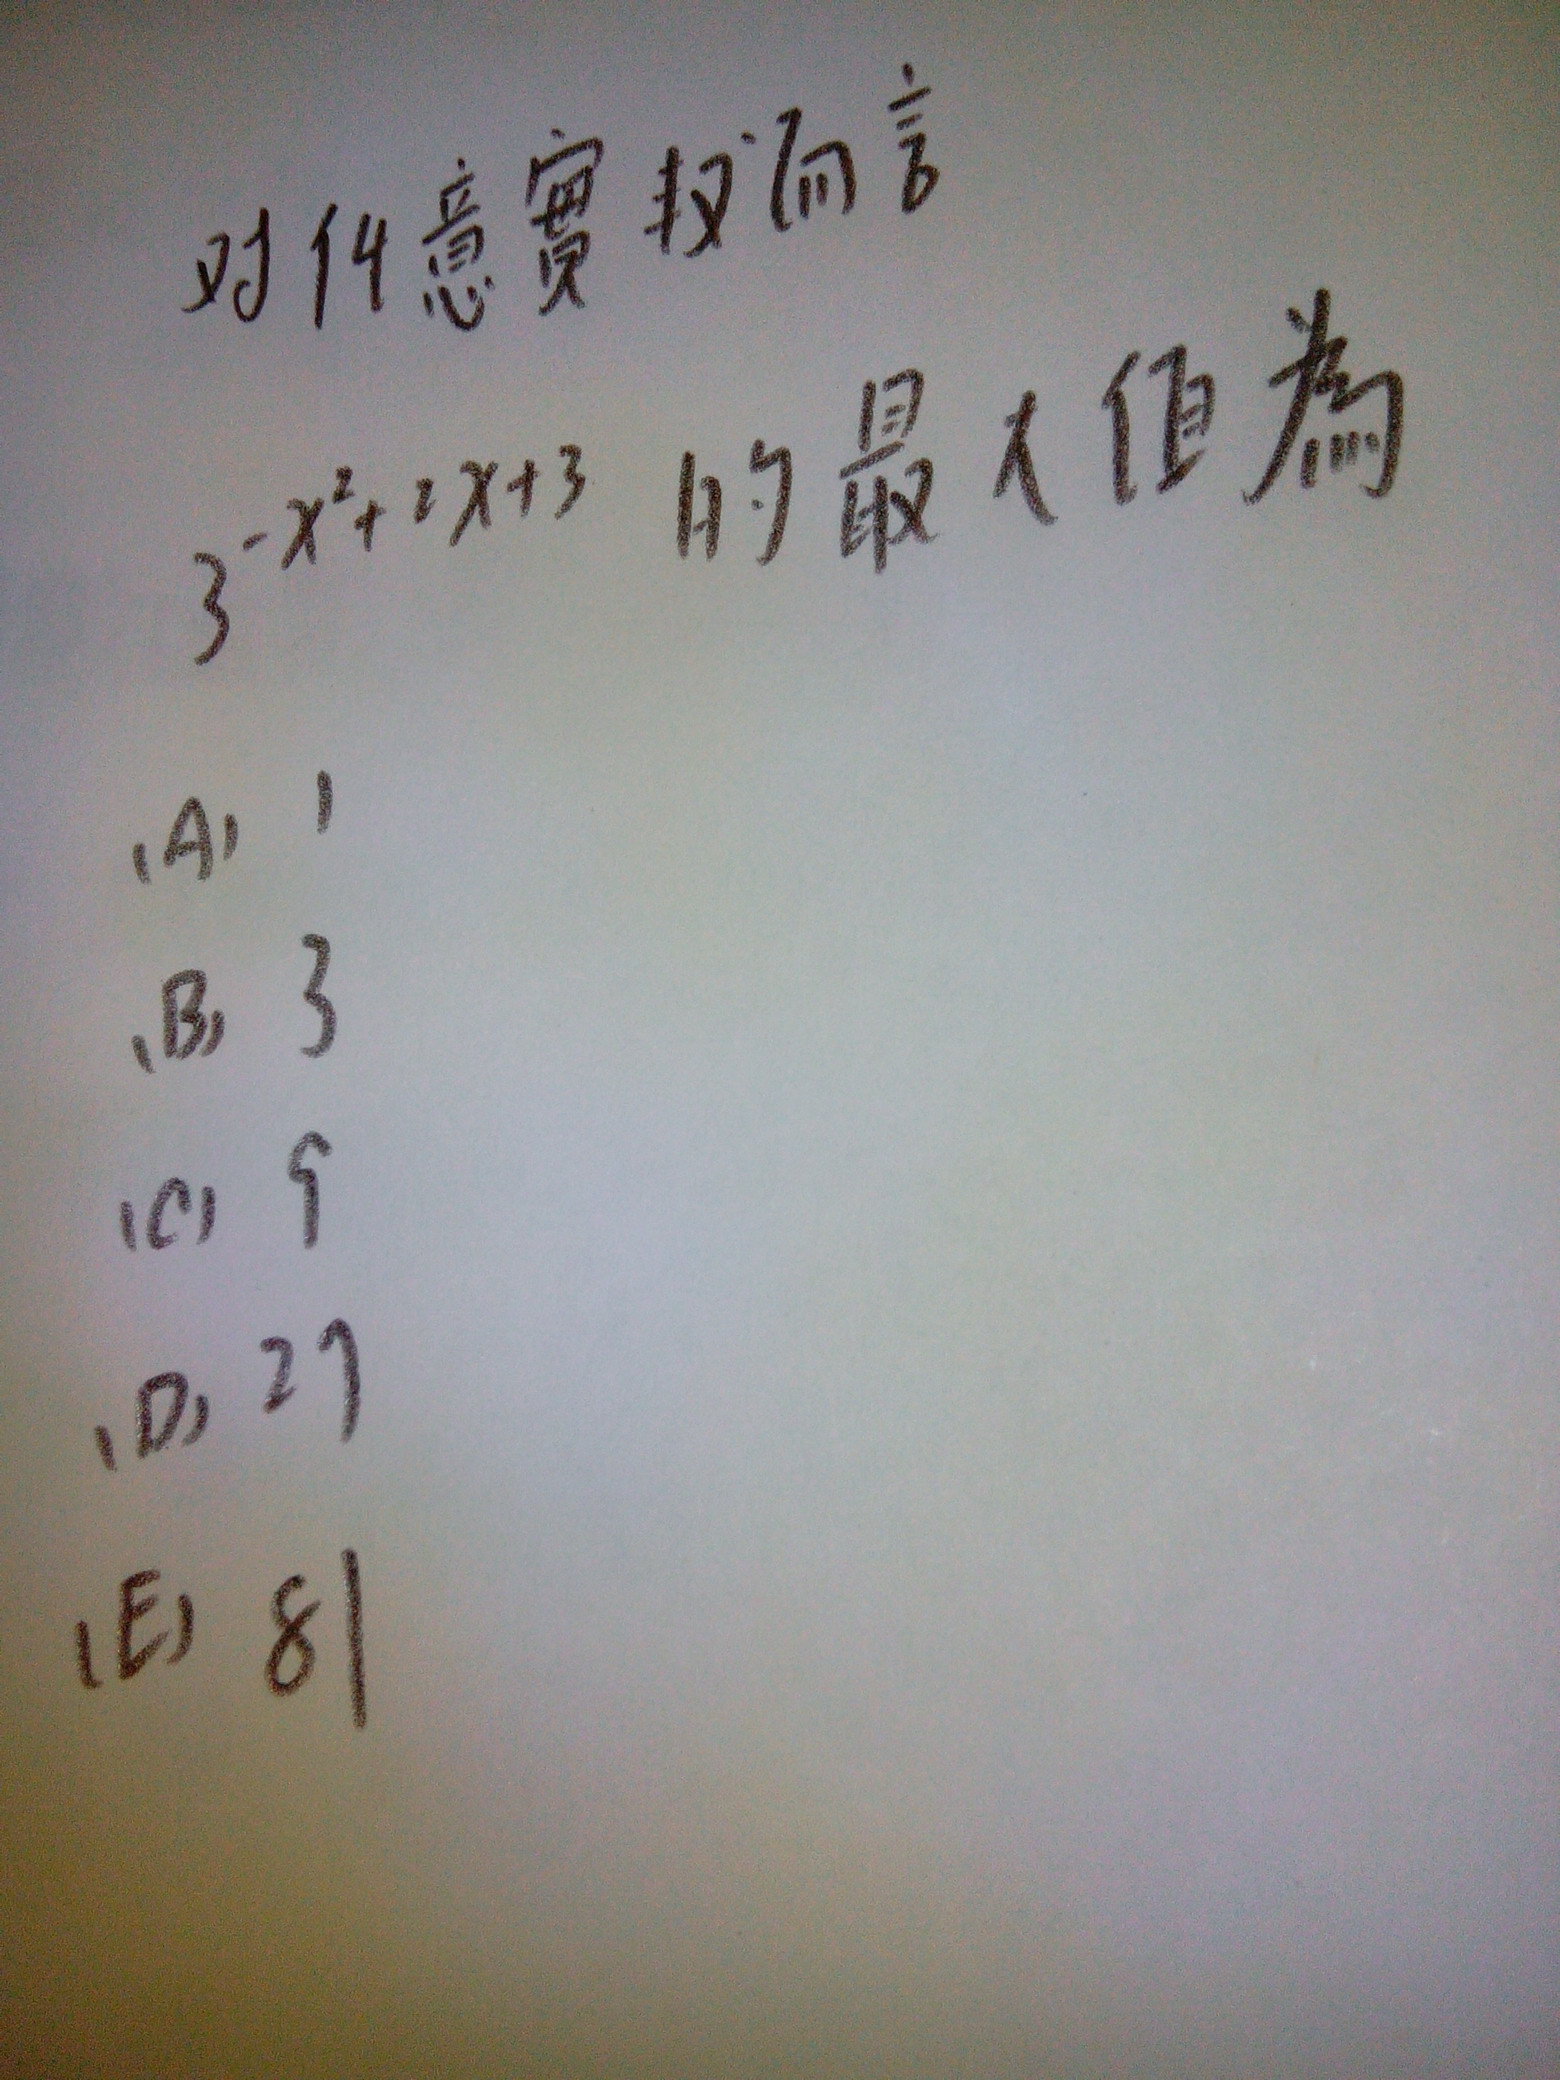 对任意實数而言
3^{-x²+2x+3} 的最大值為
(A) 1
(B) 3
(C) 9
(D) 27
(E) 81